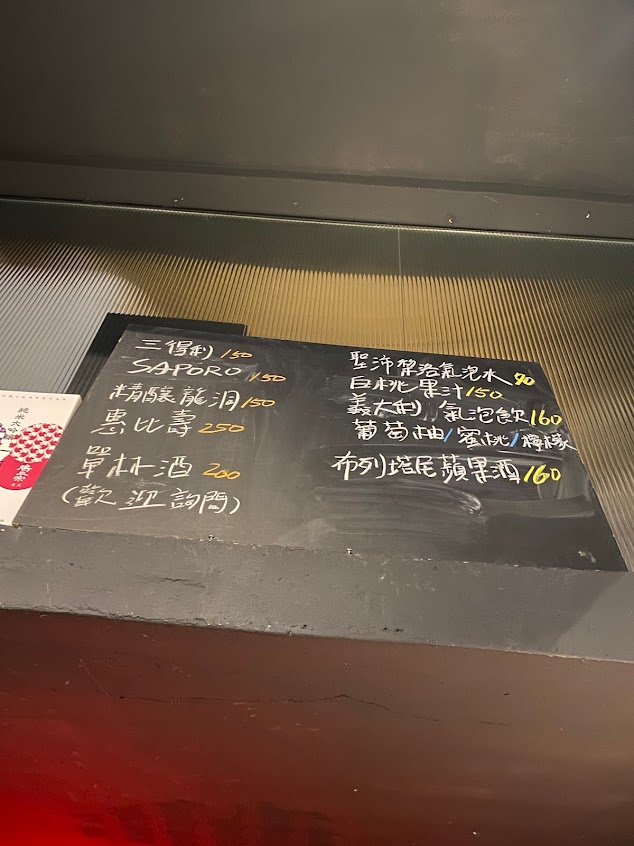 三得利 150
SAPORO 150
精釀龍洞 150
惠比壽 250
單杯酒 200
(歡迎詢問)
聖沛黎洛氣泡水 90
白桃果汁 150
義大利 氣泡飲 160
葡萄柚/蜜桃/檸檬
布列塔尼蘋果酒 160
純米大吟釀